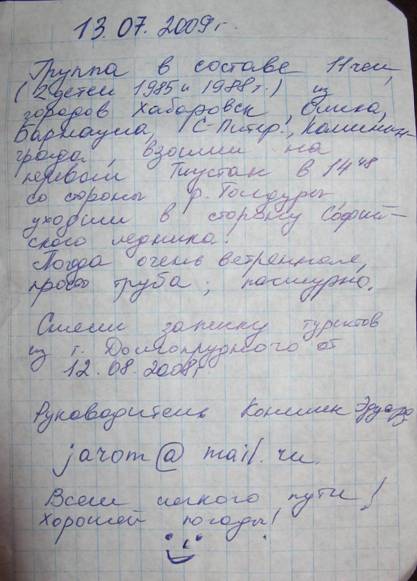 13.07.2009г.
Группа в составе 11 чел,
(2 детей 1985 и 1988 г.) из
городов Хабаровск, Омска,
Барнаула, С-Питер., Калинин-
града, взошли на
перевал в 14 48
со стороны р.
уходим в сторону Софий-
ского ледника.
Погода очень ветренная,
просто труба, пасмурно.
Сняли записку туристов
из г. Долгопрудного от
12.08.2008г
Руководитель Эдуард
jarom@mail.ru.
Всем легкого пути!
Хорошей погоды!